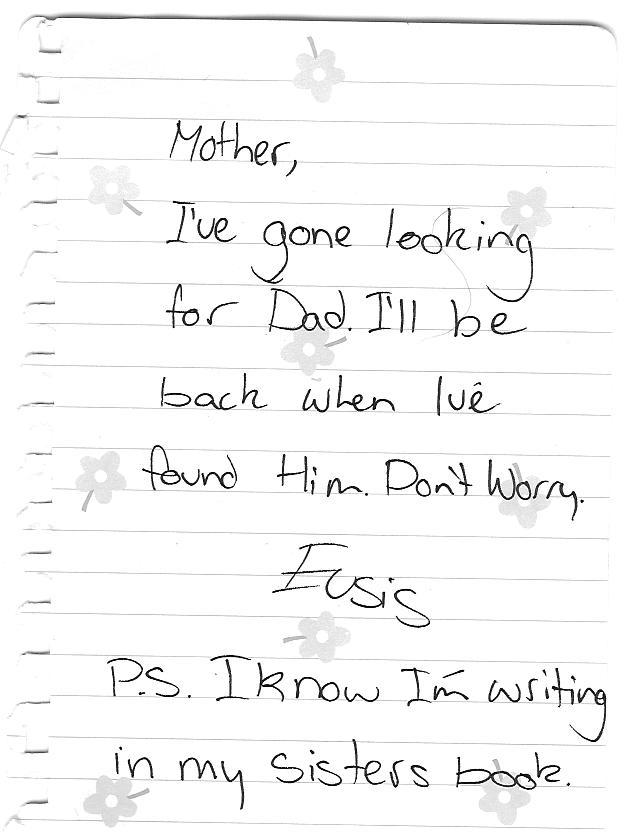 Mother,
I've gone looking
for Dad. I'll be
back when I've
found Him. Don't Worry.
Eusis
P.S. I know I'm writing
in my sisters book.